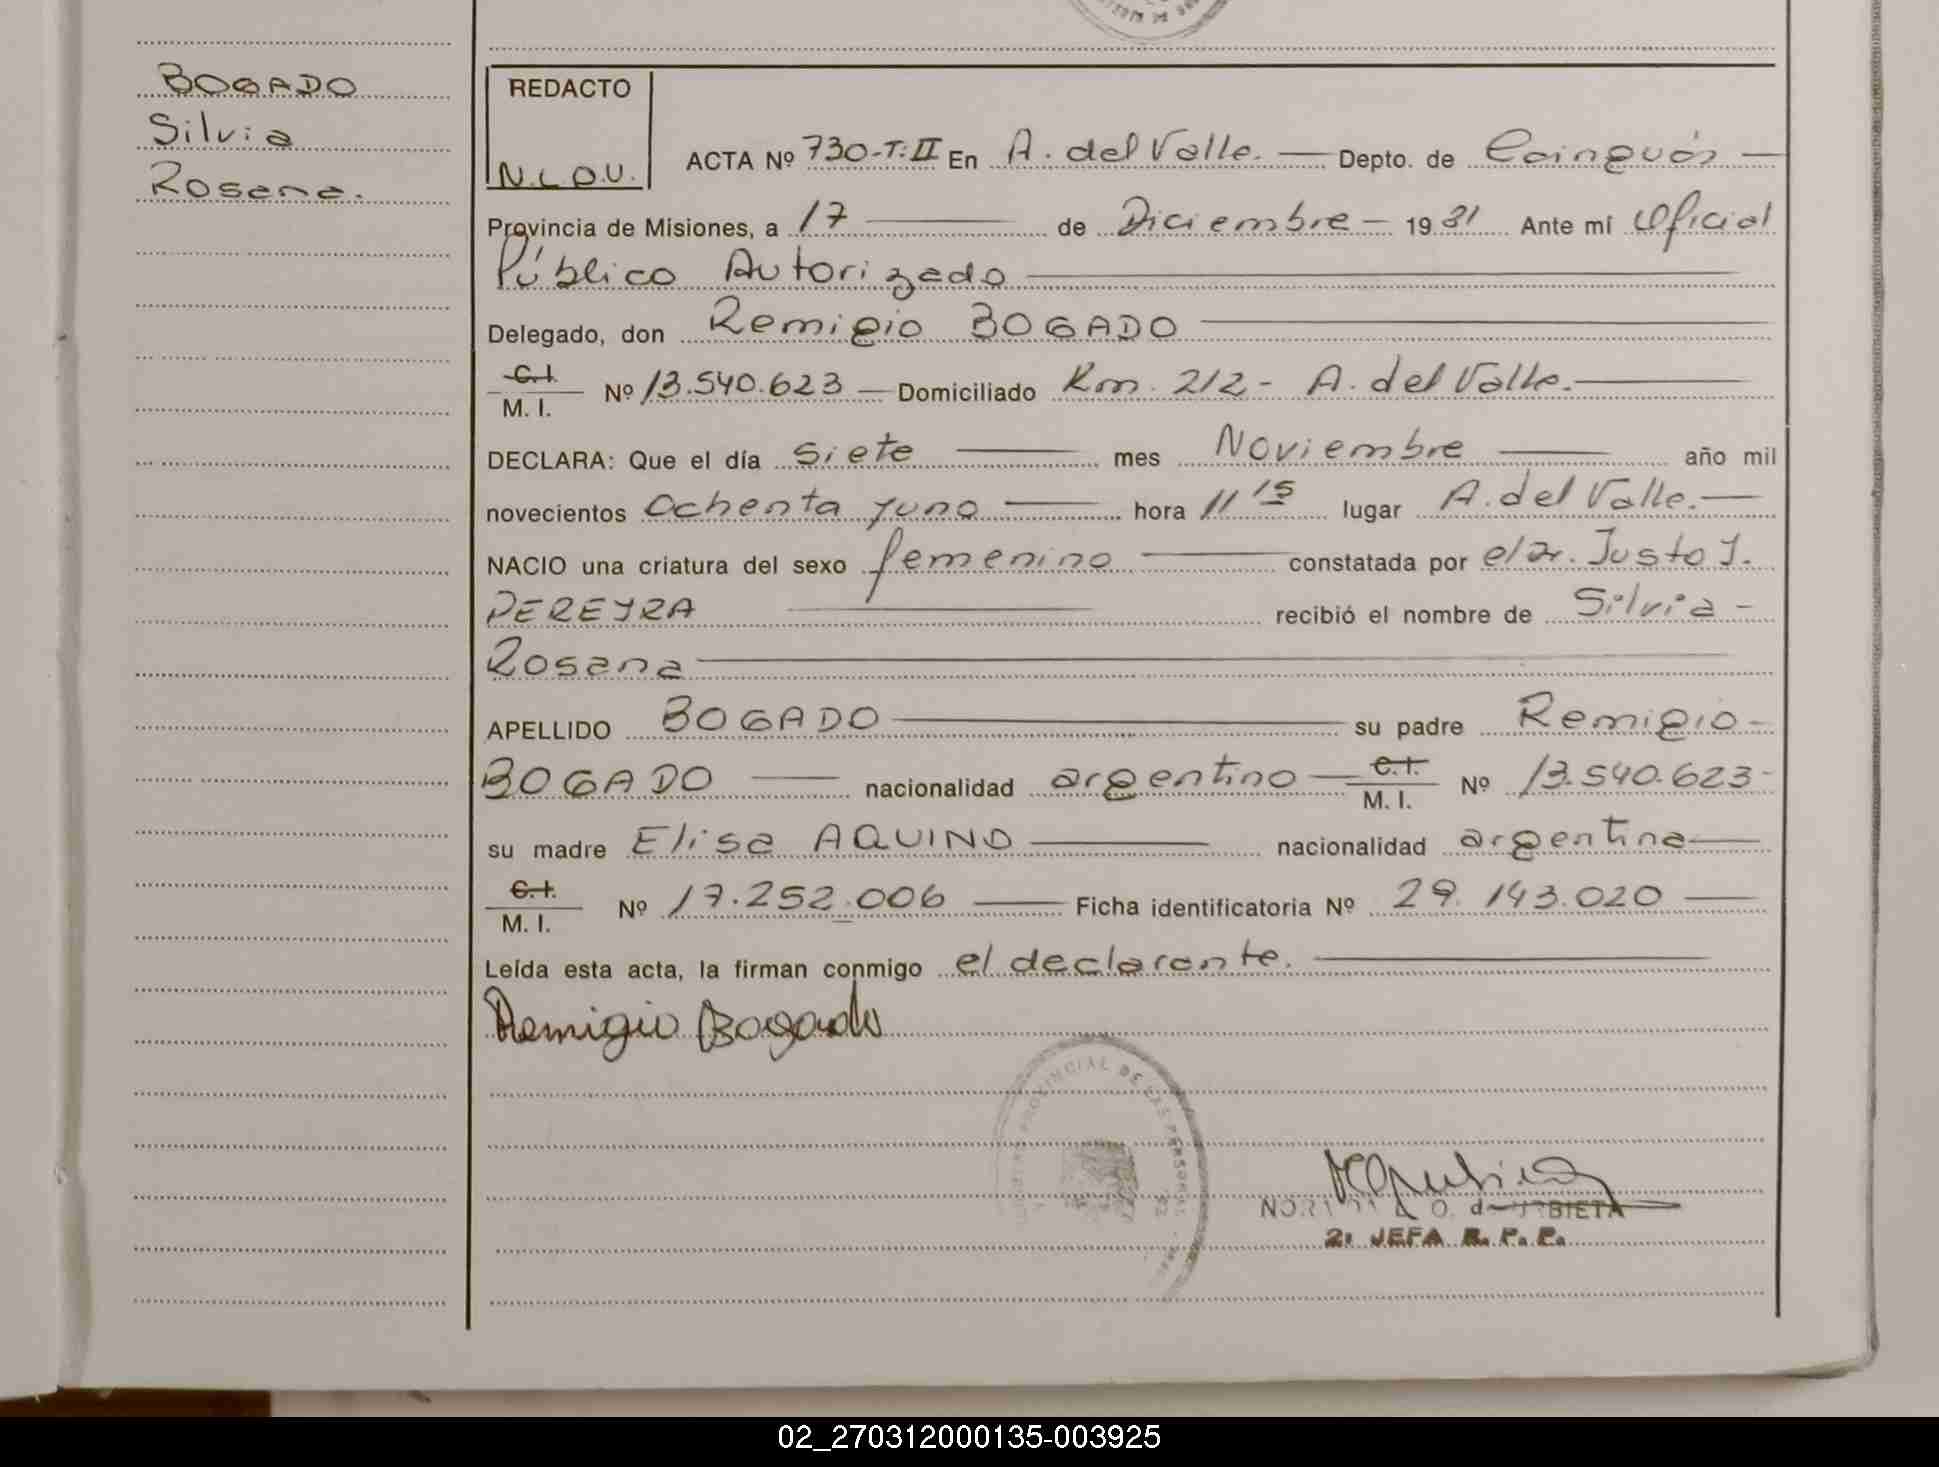 BOGADO
Silvia
Rosana.
REDACTO
N.L.O.U.
ACTA Nº 730-T:II En A. del Valle. Depto. de Cainguás
Provincia de Misiones, a 17 de Diciembre 1981 Ante mí Oficial
Público Autorizado
Delegado, don Remigio BOGADO
C.I.
M. I. Nº 13.540.623 Domiciliado Km. 212 - A. del Valle.
DECLARA: Que el día siete mes Noviembre año mil
novecientos Ochenta y uno hora 11 15 lugar A. del Valle.
NACIO una criatura del sexo femenino constatada por el Dr. Justo J.
PEREYRA recibió el nombre de Silvia -
Rosana
APELLIDO BOGADO su padre Remigio
BOGADO nacionalidad argentino C.I. M. I. Nº 13.540.623-
su madre Elisa AQUINO nacionalidad argentina
C.I.
M. I. Nº 17.252.006 Ficha identificatoria Nº 29.143.020
Leída esta acta, la firman conmigo el declarante.
Remigio Bogado
PROVINCIAL DE LAS PERSONAS
O. de URBIETA
2ª JEFA R. P. P.
02_270312000135-003925